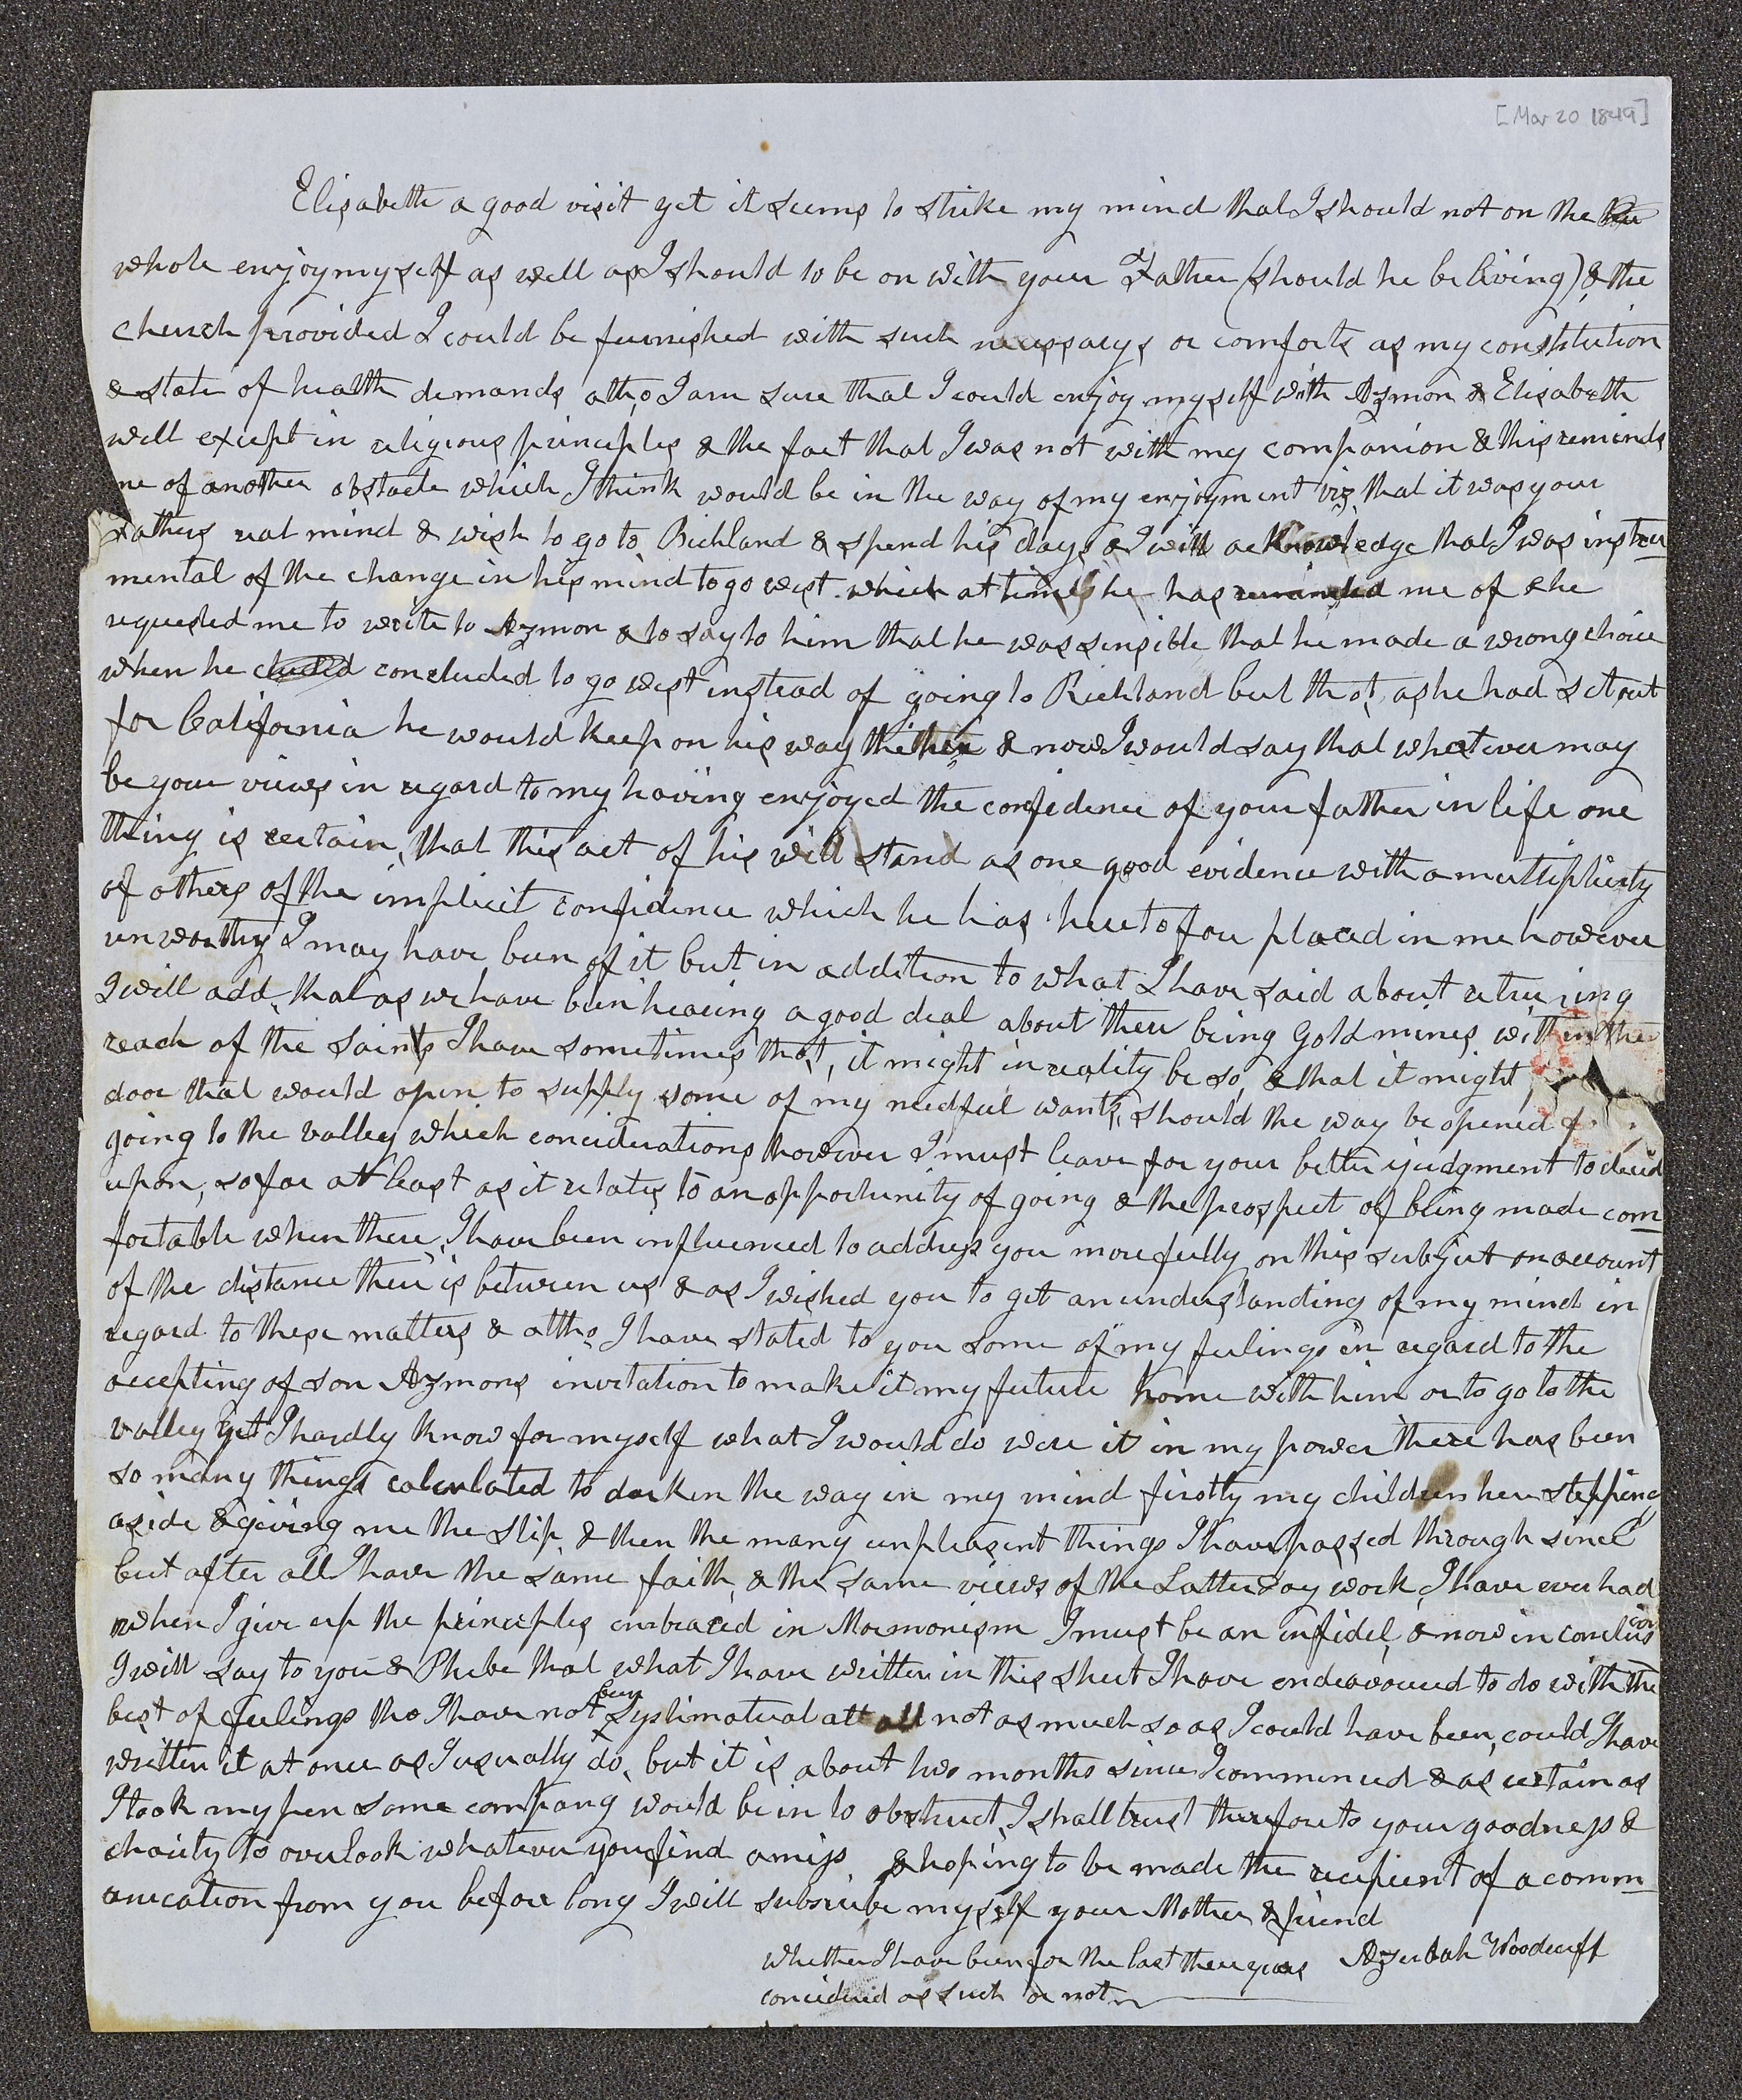 [Mar 20 1849]
Elisabeth a good visit yet it seems to strike my mind that I should not on the
whole enjoy myself as well as I should to be on with your Father (should he be living) & the
church provided I could be furnished with such necessarys or comforts as my constitution
& state of health demands altho I am sure that I could enjoy myself with Azmon & Elisabeth
well except in religious principles & the fact that I was not with my companion & this reminds
me of another obstacle which I think would be in the way of my enjoyment viz that it was your
Fathers real mind & wish to go to Richland & spend his days & I will acknowledge that I was instru
mental of the change in his mind to go west which at times he has reminded me of & he
requested me to write to Azmon & to say to him that he was sensible that he made a wrong choice
when he concluded to go west instead of going to Richland but that as he had set out
for California he would keep on his way thither & now I would say that whatever may
be your views in regard to my having enjoyed the confidence of your father in life one
thing is certain, that this act of his will stand as one good evidence with a multiplicity
of others of the implicit confidence which he has heretofore placed in me however
unworthy I may have been of it but in addition to what I have said about
I will add, that as we have been hearing a good deal about there being Gold mines within the
reach of the Saints I have sometimes thot, it might in reality be so, & that it might
door that would open to supply some of my needful wants, should the way be opened
going to the valley which conciderations however I must leave for your better judgment to decid
upon, so far at least as it relates to an opportunity of going & the prospect of being made com
fortable when there, I have been influenced to address you more fully on this subject on account
of the distance there is between us & as I wished you to get an understanding of my mind in
regard to these matters & altho I have stated to you some of my feelings in regard to the
accepting of son Azmons invitation to make it my future home with him or to go to the
valley yet I hardly know for myself what I would do were it in my power there has been
so many things calculated to darken the way in my mind firstly my children here stepping
aside & giving me the slip, & then the many unpleasent things I have passed through since
but after all I have the same faith, & the same views of the Latter day work, I have ever had
when I give up the principles embraced in Mormonism I must be an infidel, & now in conclusion
I will say to you & Phebe that what I have written in this sheet I have endeavoured to do with the
best of feelings tho I have not been Systimatical att all not as much so as I could have been, could I have
written it at once as I usually do, but it is about two months since I commenced & as certain as
I took my pen some company would be in to obstruct, I shall trust therefore to your goodness &
charity to overlook whatever you find amiss & hoping to be made the recipient of a comm
unication from you before long I will subscribe myself your Mother & friend
whether I have been for the last three years Azubah Woodruff
concidered as such or not